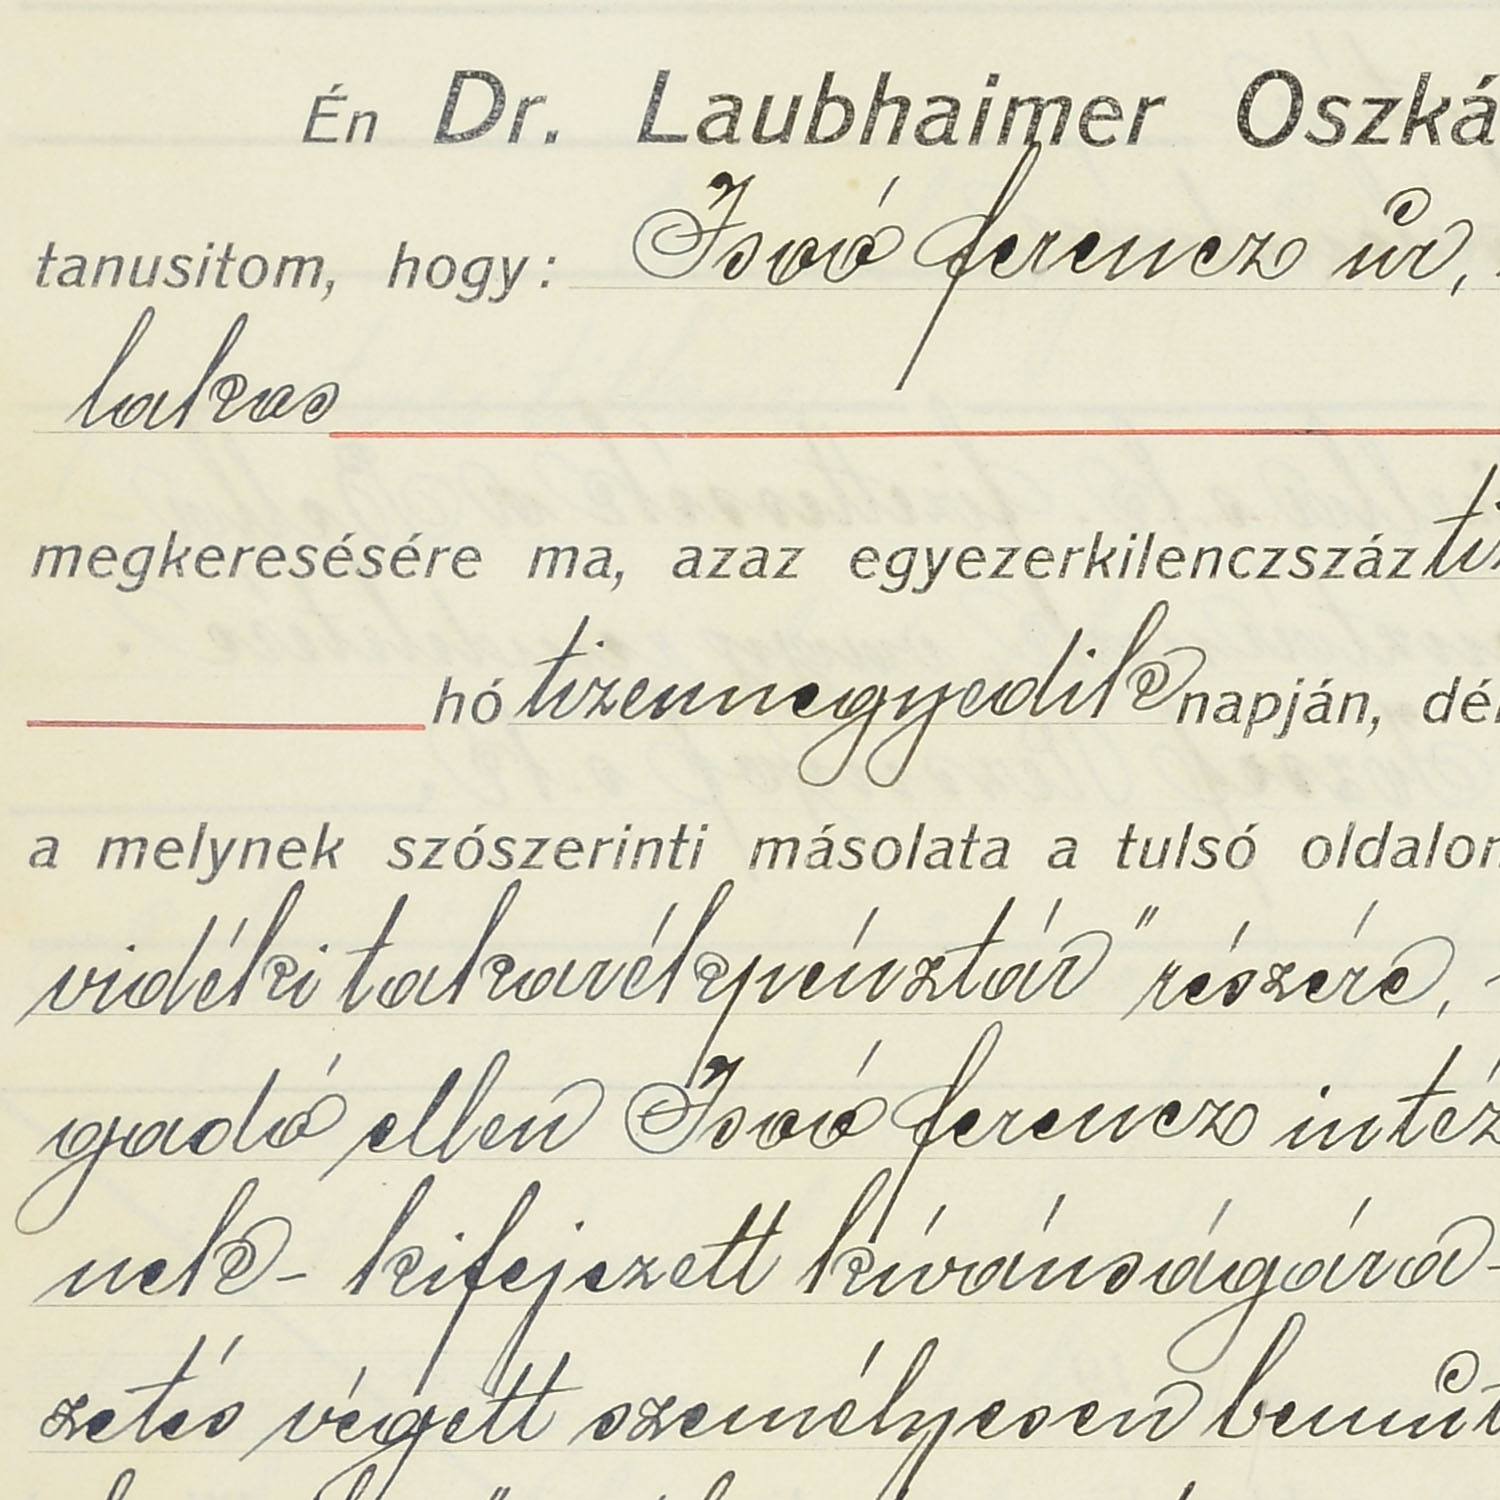 Én Dr. Laubhaimer Oszká
tanusitom, hogy: Isoó ferencz úr,
lakos
megkeresésére ma, azaz egyezerkilenczszáz ti
hó tizennegyedik napján, dél
a melynek szószerinti másolata a tulsó oldalon
vidéki takarékpénztár" részére,
gadó ellen Isoó ferencz intéz
nek- kifejezett kívánságára-
zetés végett személyesen bemut